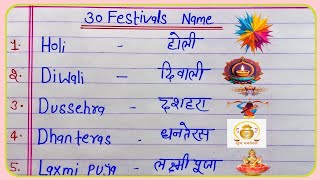 30 Festivals Name
1. Holi - होली
2. Diwali - दिवाली
3. Dussehra - दशहरा
4. Dhanteras - धनतेरस
5. Laxmi puja - लक्ष्मी पूजा